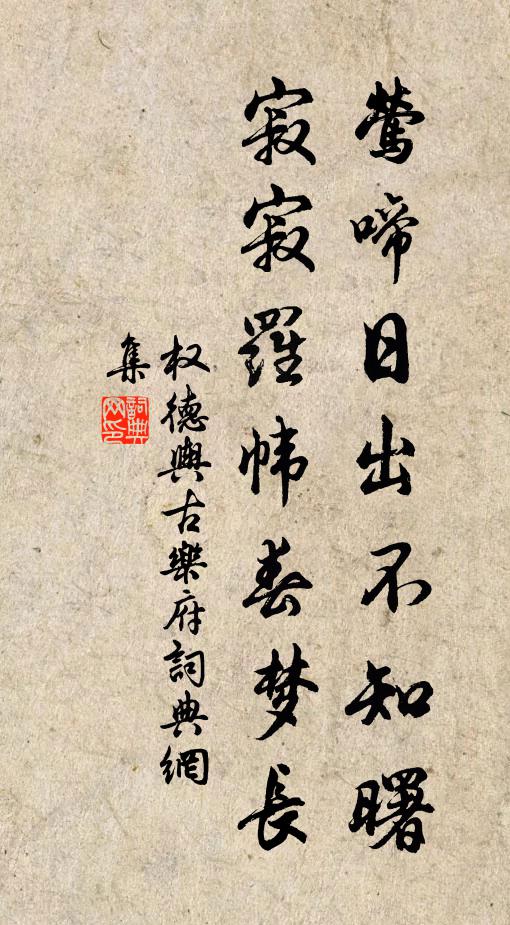 莺啼日出不知曙
寂寂羅幃春梦長
权德輿古樂府詞典網
集
詞典網印